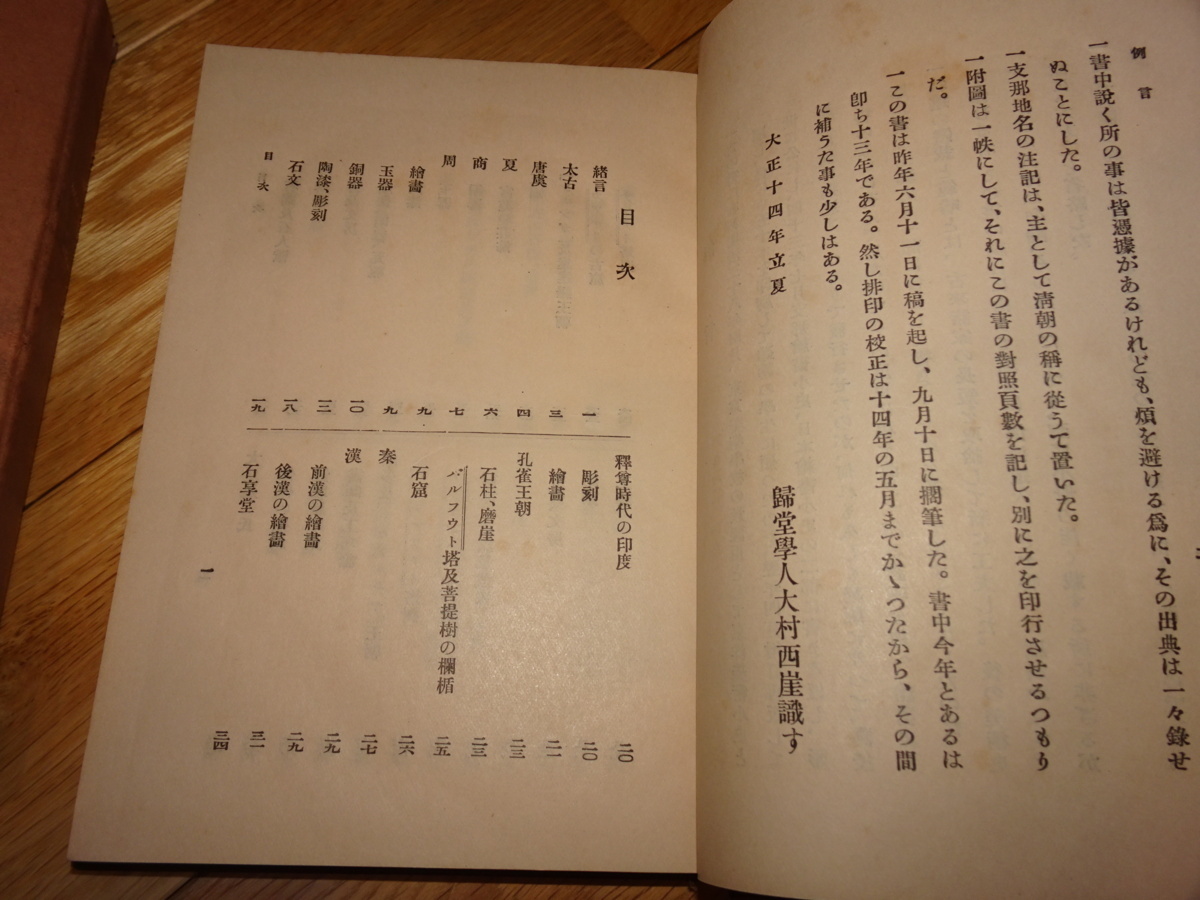 例言
一書中說く所の事は皆憑據があるけれども、煩を避ける爲に、その出典は一々錄せ
ぬことにした。
一支那地名の注記は、主として清朝の稱に從うて置いた。
一附圖は一帙にして、それにこの書の對照頁數を記し、別に之を印行させるつもり
だ。
一この書は昨年六月十一日に稿を起し、九月十日に擱筆した。書中今年とあるは
卽ち十三年である。然し排印の校正は十四年の五月までかゝつたから、その間
に補うた事も少しはある。
大正十四年立夏
歸堂學人大村西崖識す
目次
緒言 一
太古 三
唐虞 四
夏 六
商 七
周 九
繪畫 九
玉器 一〇
銅器 一二
陶漆、彫刻 一八
石文 一九
釋尊時代の印度 二〇
彫刻 二〇
繪畫 二一
孔雀王朝 二三
石柱、磨崖 二三
バルフウト塔及菩提樹の欄楯 二五
石窟 二六
秦 二七
漢 二九
前漢の繪畫 二九
後漢の繪畫 三一
石享堂 三四
目次
一